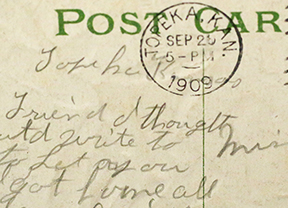 POST CAR
TOPEKA, KAN.
SEP 25
5-PM
1909
Topeka Kansas
Friend I thought
would write to
to let you
got home all
Miss